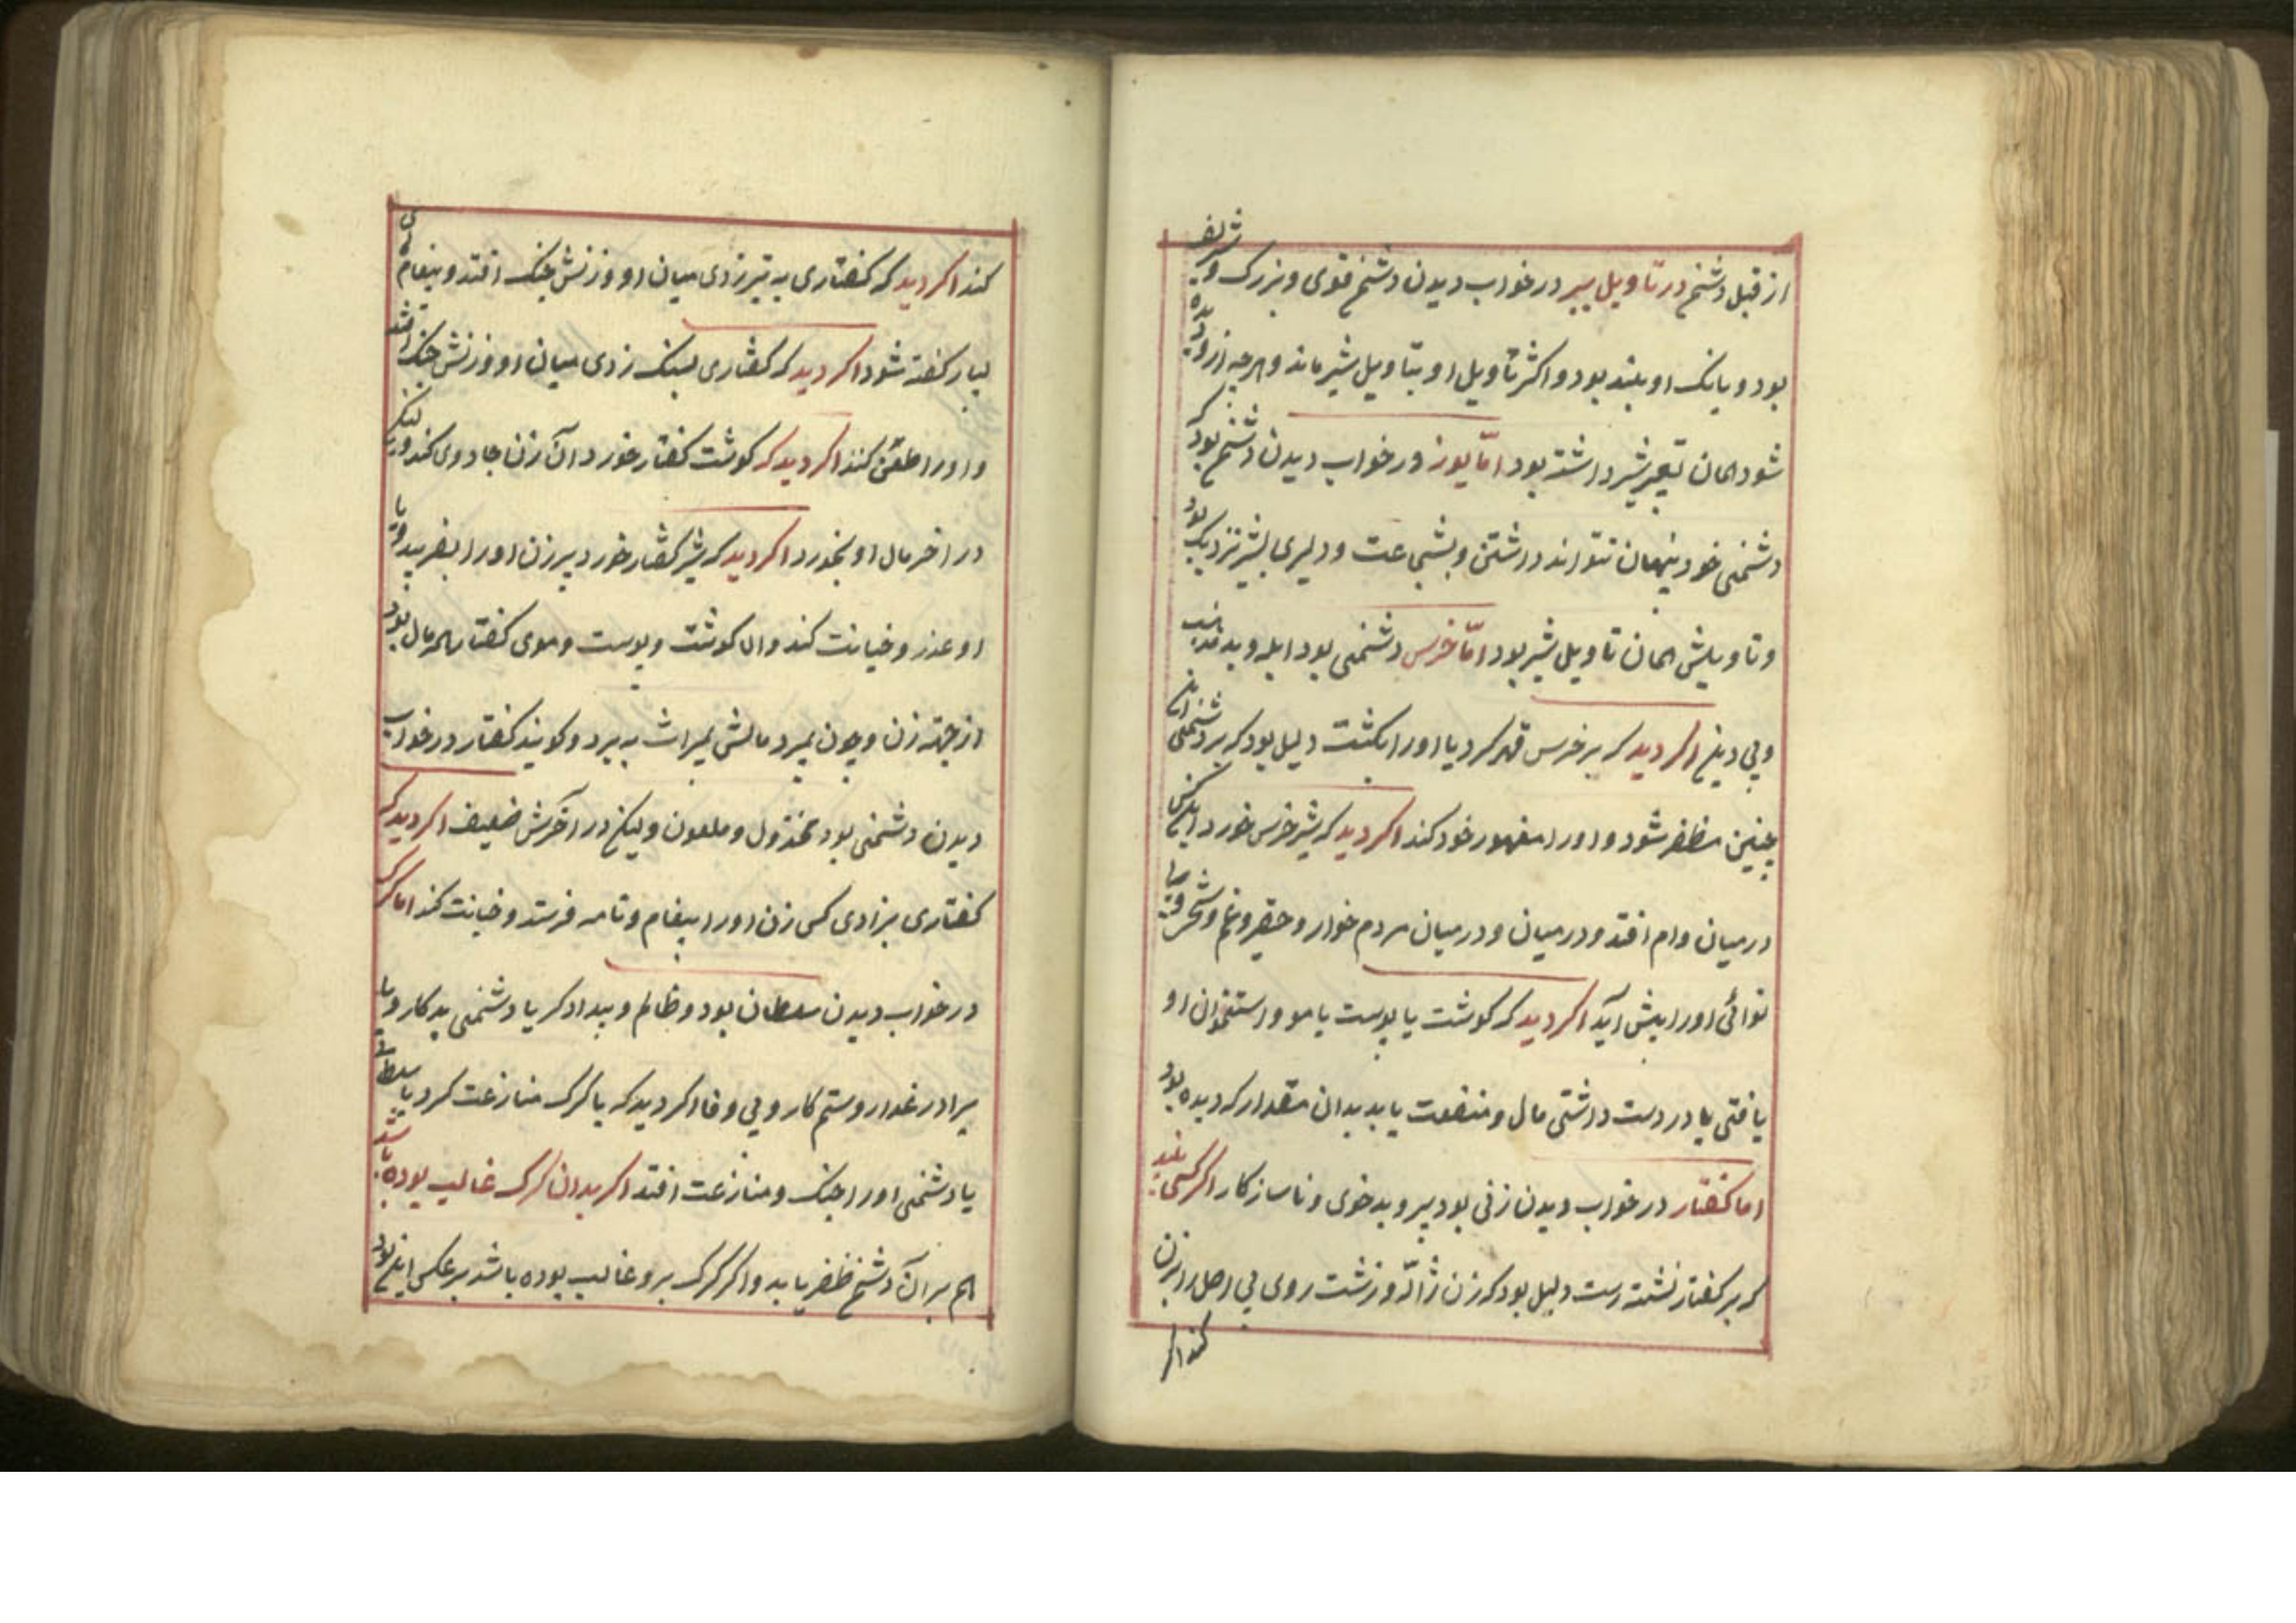 از قبل دشمن در تاویل ببر در خواب دیدن دشمن قوی و بزرک و شریف
بود و بانک او بلند بود و اکثر تاویل او بتاویل شیر ماند و هرچه از و دیده
شود همان تعبیر شیر داشته بود امّا یوز در خواب دیدن دشمن بود که
دشمنی خود پنهان نتواند داشتن و بشجاعت و دلیری بشیر نزدیک بود
و تاویلش همان تاویل شیر بود امّا خرس دشمنی بود ابله و بد مذهب
و بی دین اکر دید که بر خرس قهر کرد یا او را بکشت دلیل بود که بر دشمنی
چنین مظفر شود و او را مقهور خود کند اکر دید که شیر خرس خورد
در میان وام افتد و در میان و در میان مردم خوار و حقیر و غم و
نوائی او را پیش آید اکر دید که کوشت یا پوست یا مو و استخوان او
یافتی یا در دست داشتی مال و منفعت یابد بدان مقدار که دیده بود
اما کفتار در خواب دیدن زنی بود پیر و بد خوی و ناسازکار اکر کسی بیند
که بر کفتار نشسته است دلیل بود که زن و زشت روی بی اصل را بزن
کند اکر
کند اکر دید که کفتاری به تیر زدی میان او و زنش جنک افتد و پیغام
بسیار کفته شود اکر دید که کفتاری بسنک زدی میان او و زنش جنک افتد
و او را طعن کند اکر دید که کوشت کفتار خورد آن زن جادوی کند ولیکن
در اخر مال او بخورد اکر دید که شیر کفتار خورد پیر زن او را بفریبد و با
او عذر و خیانت کند و الا کوشت و پوست و موی کفتار همه مال بود
از جهته زن و چون بمیرد مالش بمیراث به برد و کویند کفتار در خواب
دیدن دشمنی بود مخذول و ملعون و لیکن در آخرش ضعیف اکر دید که
کفتاری بزادی کسی زن او را پیغام و نامه فرستد و خیانت کند اما کرک
در خواب دیدن سلطان بود و ظالم و بیدادکر یا دشمنی بد کار و یا
برادر غدار و ستم کار و بی وفا اکر دید که با کرک منازعت کرد با سلطانی
یا دشمنی او را جنک و منازعت افتد اکر بدان کرک غالب بوده باشد
هم بر آن دشمن ظفر یابد و اکر کرک برو غالب بوده باشد بر عکس این بود